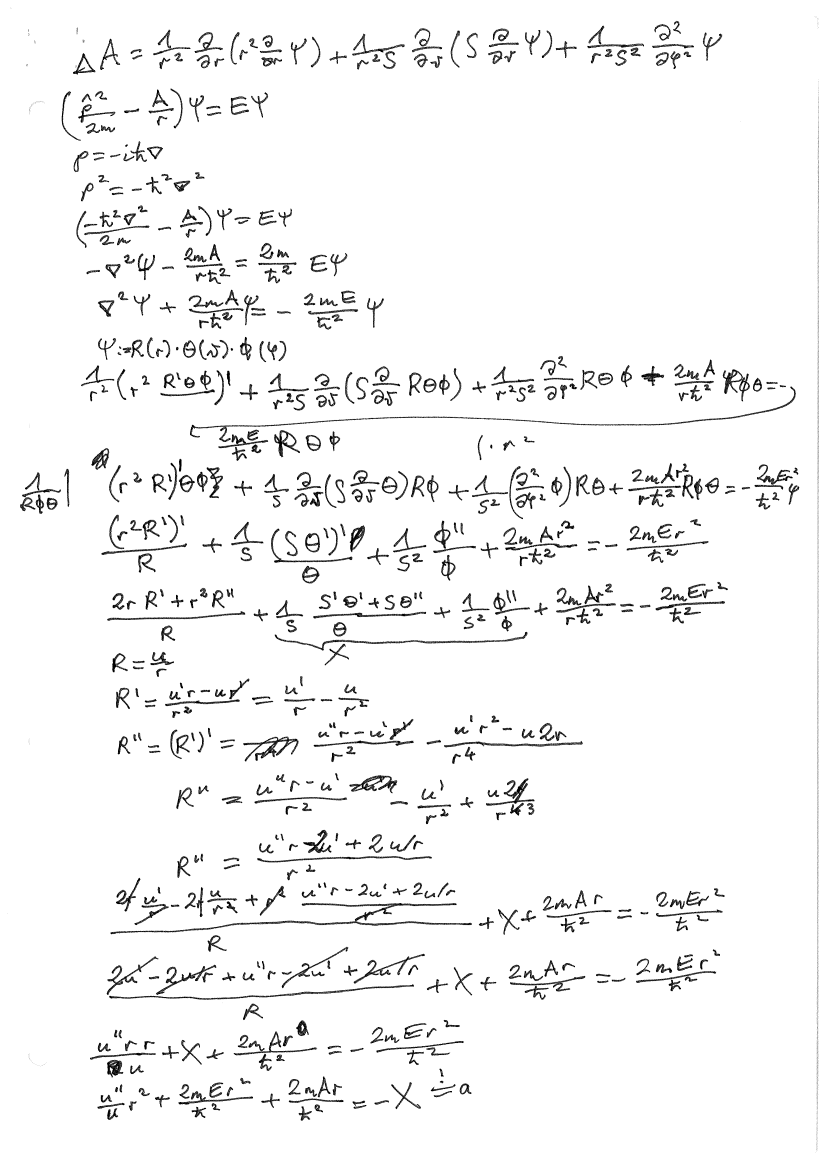 ΔA = 1/r² ∂/∂r (r² ∂/∂r Ψ) + 1/(r²S) ∂/∂ϑ (S ∂/∂ϑ Ψ) + 1/(r²S²) ∂²/∂φ² Ψ
(p̂²/2m - A/r) Ψ = EΨ
p = -iħ∇
p² = -ħ²∇²
(-ħ²∇²/2m - A/r) Ψ = EΨ
-∇²Ψ - 2mA/(rħ²) = 2m/ħ² EΨ
∇²Ψ + 2mA/(rħ²) Ψ = - 2mE/ħ² Ψ
Ψ := R(r)·Θ(ϑ)·Φ(φ)
1/r² (r² R'ΘΦ)' + 1/(r²S) ∂/∂ϑ (S ∂/∂ϑ RΘΦ) + 1/(r²S²) ∂²/∂φ² RΘΦ + 2mA/(rħ²) RΦΘ = -
2mE/ħ² RΘΦ (· r²
1/(RΦΘ) | (r² R')'ΘΦ + 1/S ∂/∂ϑ (S ∂/∂ϑ Θ) RΦ + 1/S² (∂²/∂φ² Φ) RΘ + 2mAr²/(rħ²) RΦΘ = - 2mEr²/ħ² Ψ
(r²R')'/R + 1/S (SΘ')'/Θ + 1/S² Φ''/Φ + 2mAr²/(rħ²) = - 2mEr²/ħ²
(2rR' + r²R'')/R + 1/S (S'Θ' + SΘ'')/Θ + 1/S² Φ''/Φ + 2mAr²/(rħ²) = - 2mEr²/ħ²
X
R = u/r
R' = (u'r - ur')/r² = u'/r - u/r²
R'' = (R')' = (u''r - u'r')/r² - (u'r² - u2r)/r⁴
R'' = (u''r - u')/r² - u'/r² + u2/r³
R'' = (u''r - 2u' + 2u/r)/r²
(2r u'/r - 2r u/r² + r² (u''r - 2u' + 2u/r)/r²)/R + X + 2mAr/ħ² = - 2mEr²/ħ²
(2u' - 2u/r + u''r - 2u' + 2u/r)/R + X + 2mAr/ħ² = - 2mEr²/ħ²
u''rr/u + X + 2mAr/ħ² = - 2mEr²/ħ²
u''/u r² + 2mEr²/ħ² + 2mAr/ħ² = -X != a